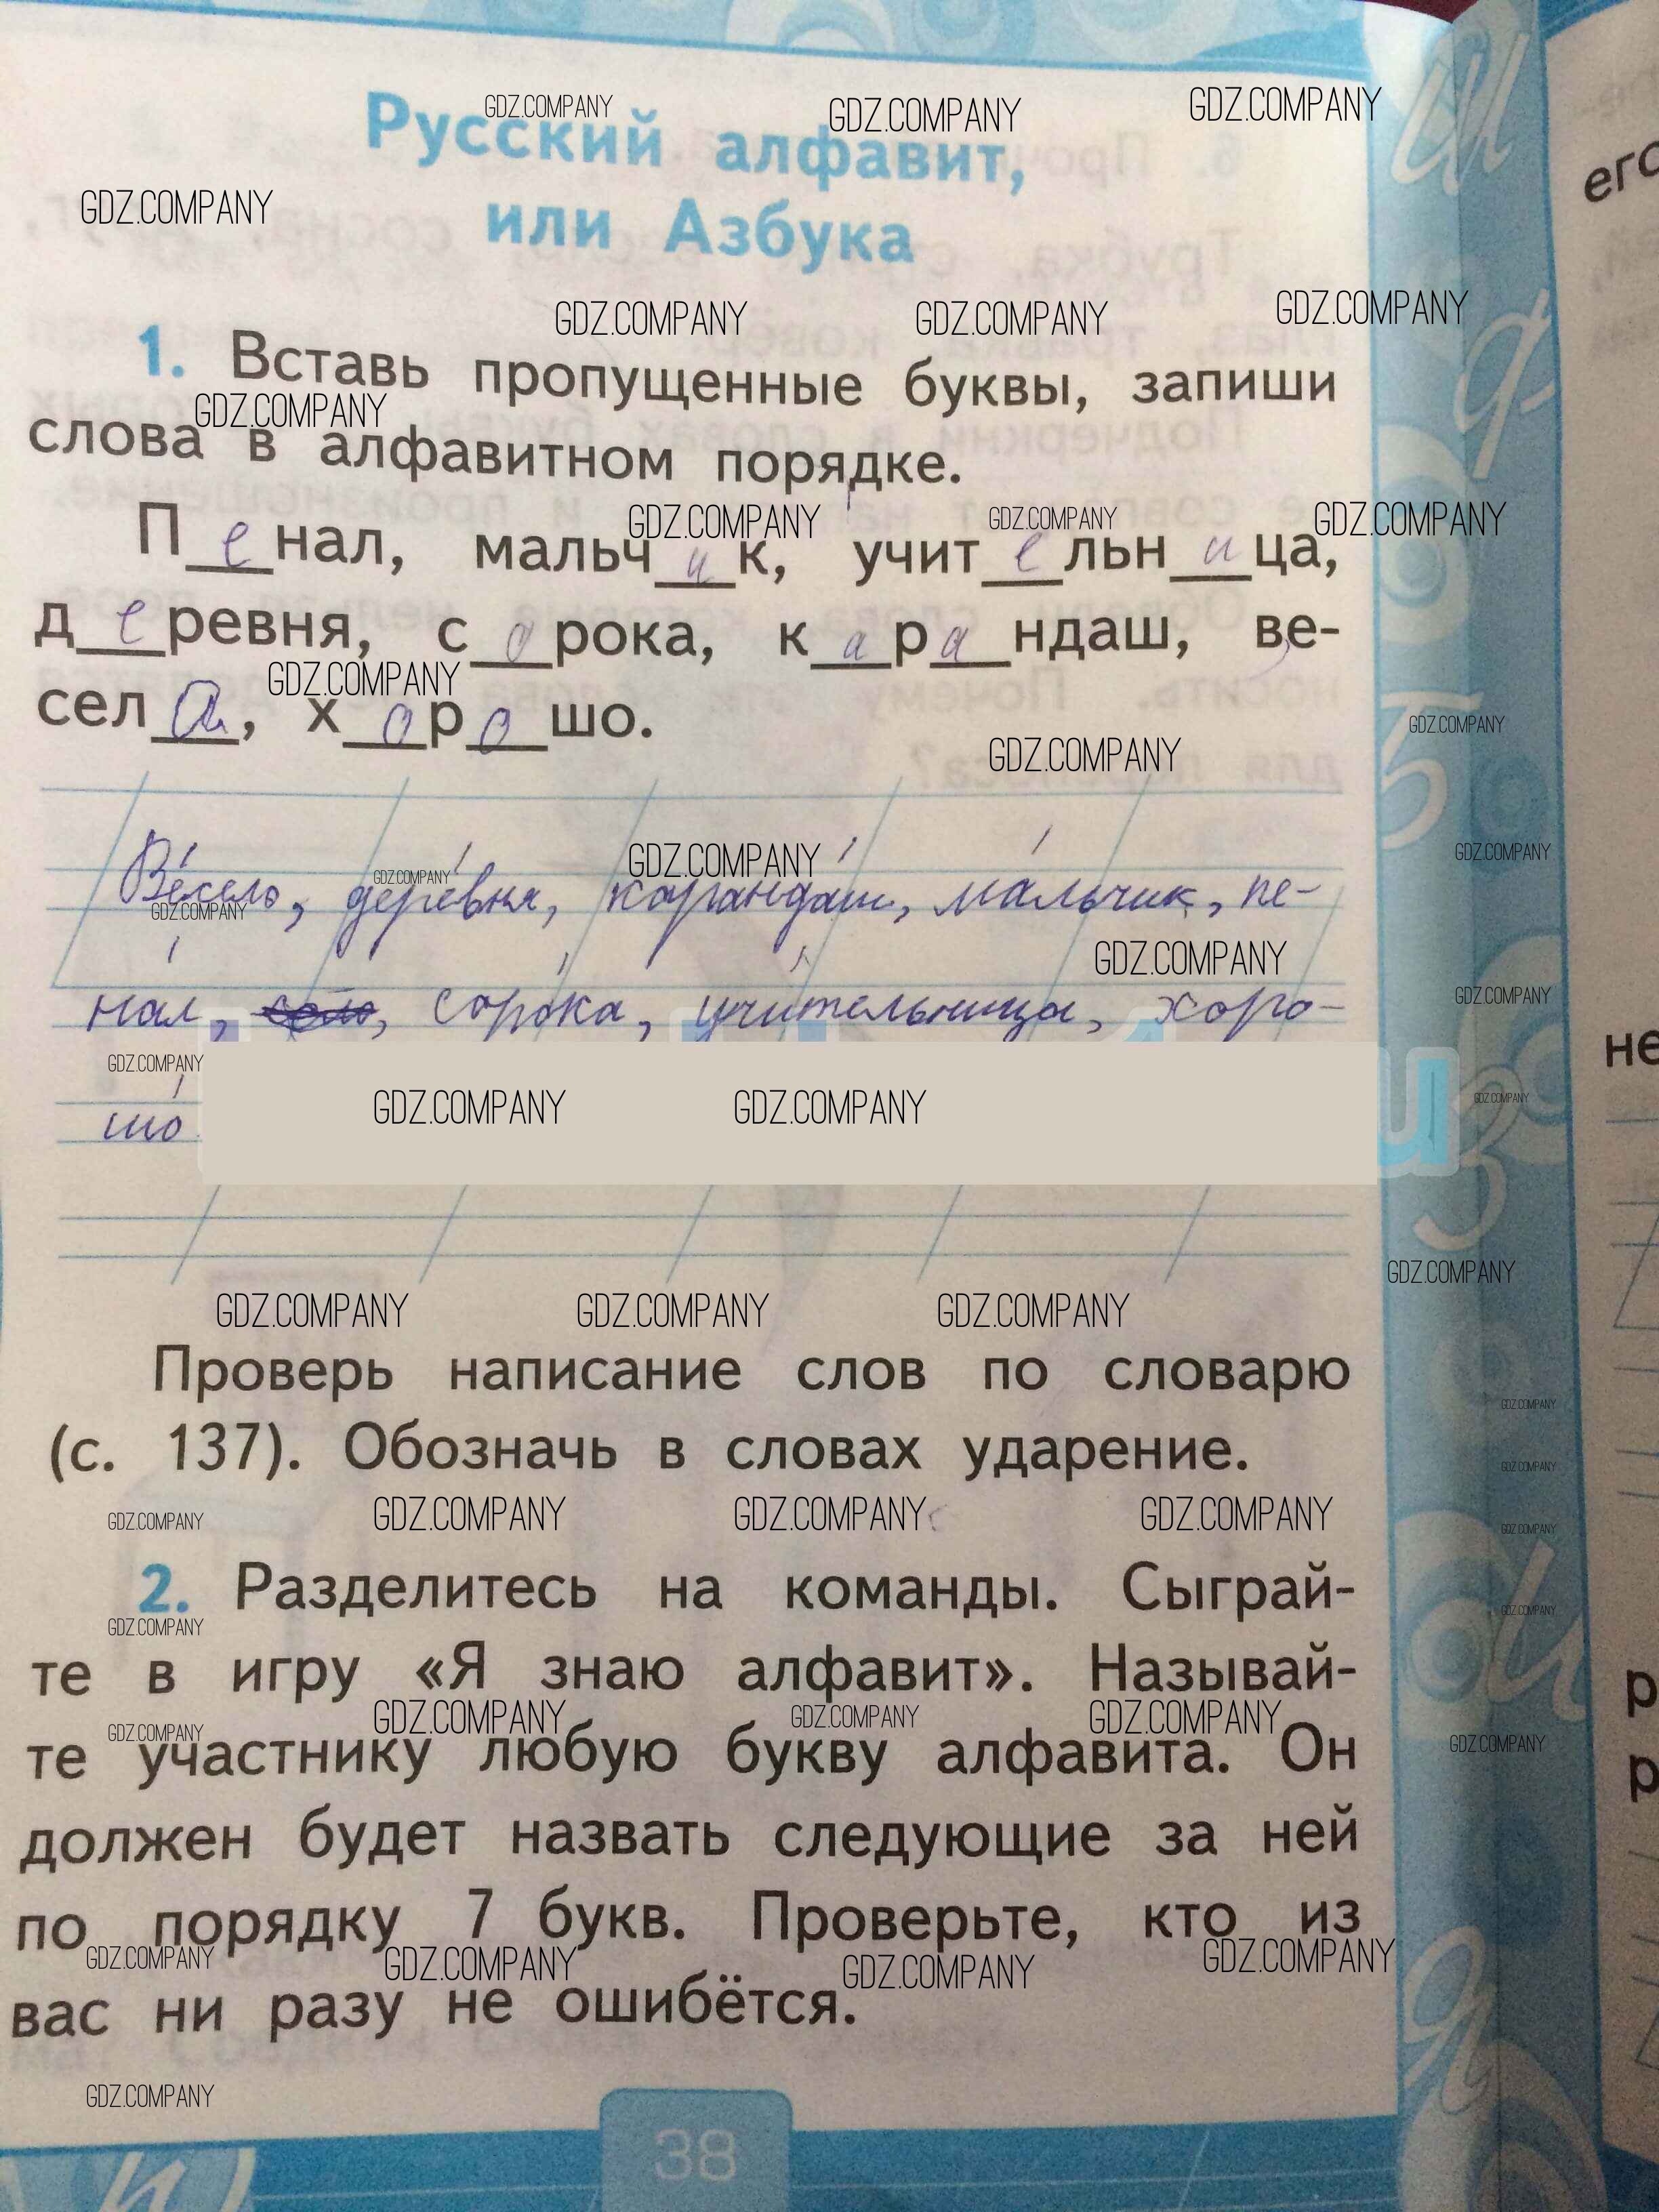 Русский алфавит,
или Азбука
1. Вставь пропущенные буквы, запиши
слова в алфавитном порядке.
Пенал, мальчик, учительница,
деревня, сорока, карандаш, ве-
села, хорошо.
Весело, деревня, карандаш, мальчик, пе-
нал, сорока, учительница, хоро-
шо.
Проверь написание слов по словарю
(с. 137). Обозначь в словах ударение.
2. Разделитесь на команды. Сыграй-
те в игру «Я знаю алфавит». Называй-
те участнику любую букву алфавита. Он
должен будет назвать следующие за ней
по порядку 7 букв. Проверьте, кто из
вас ни разу не ошибётся.
38
GDZ.COMPANY